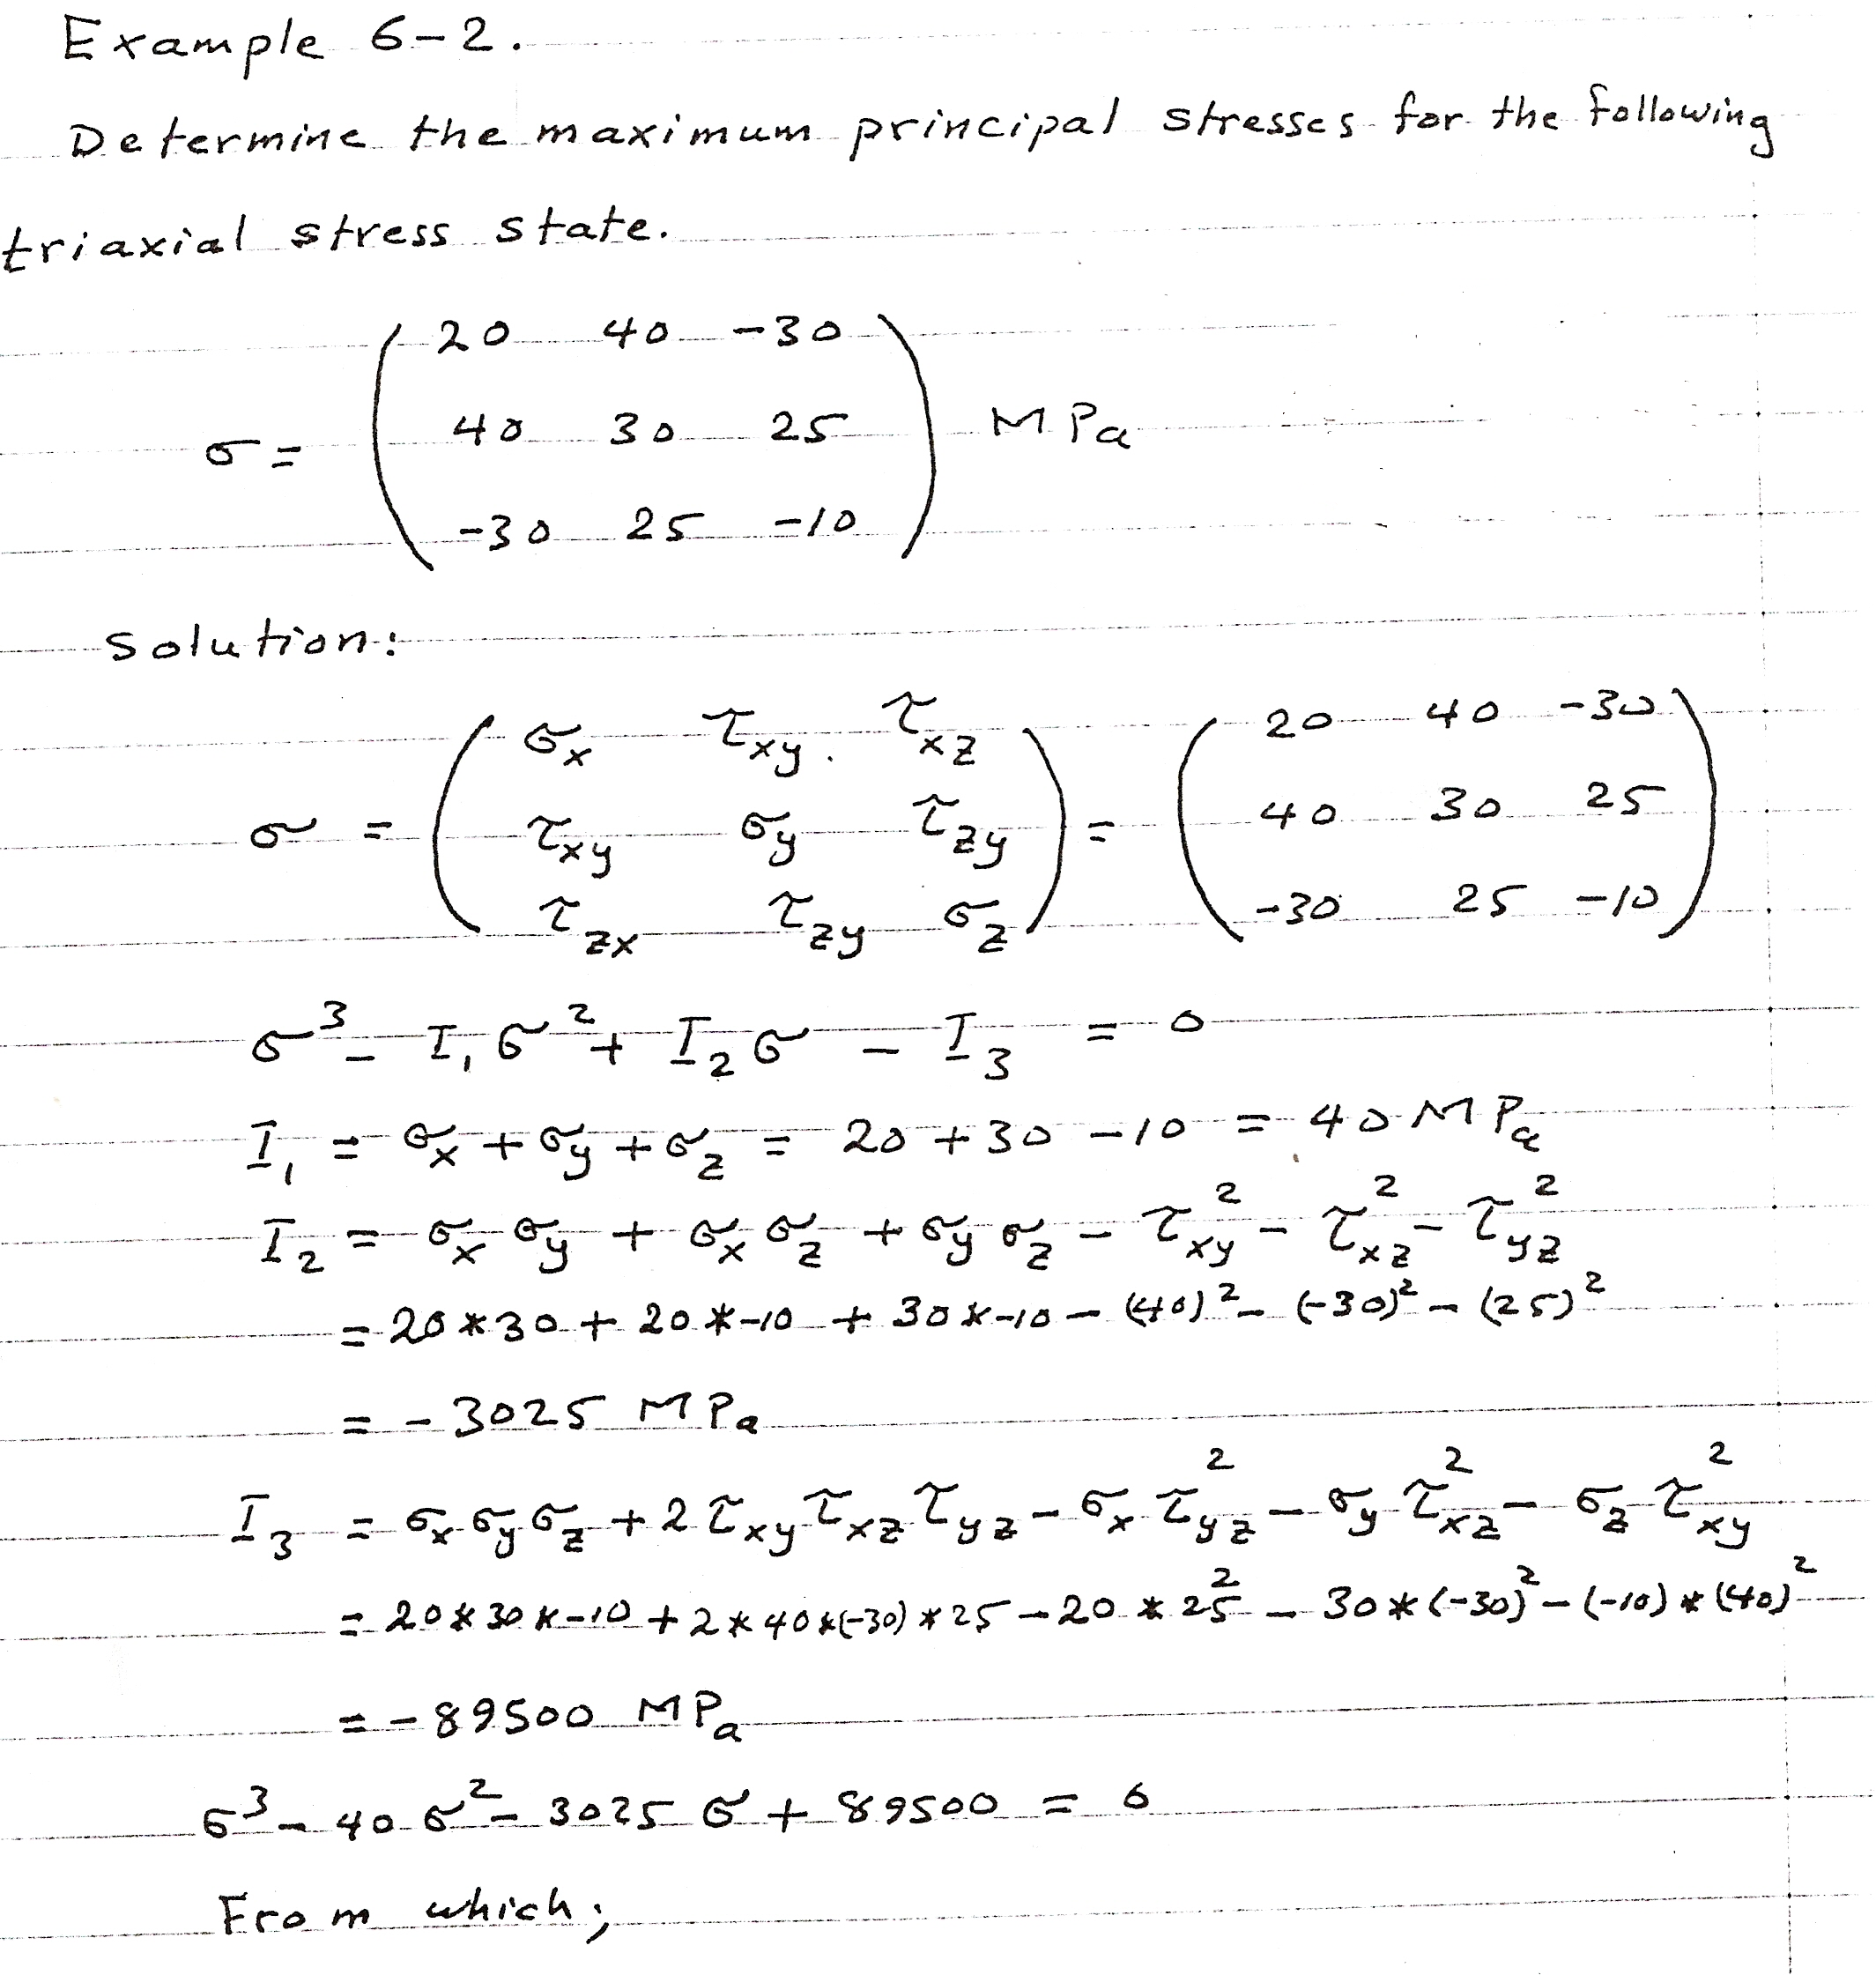 Example 6-2.
Determine the maximum principal stresses for the following
triaxial stress state.
σ = ( 20 40 -30
40 30 25
-30 25 -10 ) MPa
Solution:
σ = ( σx τxy. τxz
τxy σy τzy
τzx τzy σz ) = ( 20 40 -30
40 30 25
-30 25 -10 )
σ³ - I₁σ² + I₂σ - I₃ = 0
I₁ = σx + σy + σz = 20 + 30 - 10 = 40 MPa
I₂ = σx σy + σx σz + σy σz - τxy² - τxz² - τyz²
= 20*30 + 20*-10 + 30*-10 - (40)² - (-30)² - (25)²
= -3025 MPa
I₃ = σx σy σz + 2 τxy τxz τyz - σx τyz² - σy τxz² - σz τxy²
= 20*30*-10 + 2*40*(-30)*25 - 20*25² - 30*(-30)² - (-10)*(40)²
= -89500 MPa
σ³ - 40σ² - 3025σ + 89500 = 0
From which;